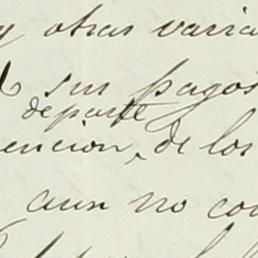 y otras varia
sus pagos
de parte
encion, de los
aun no con